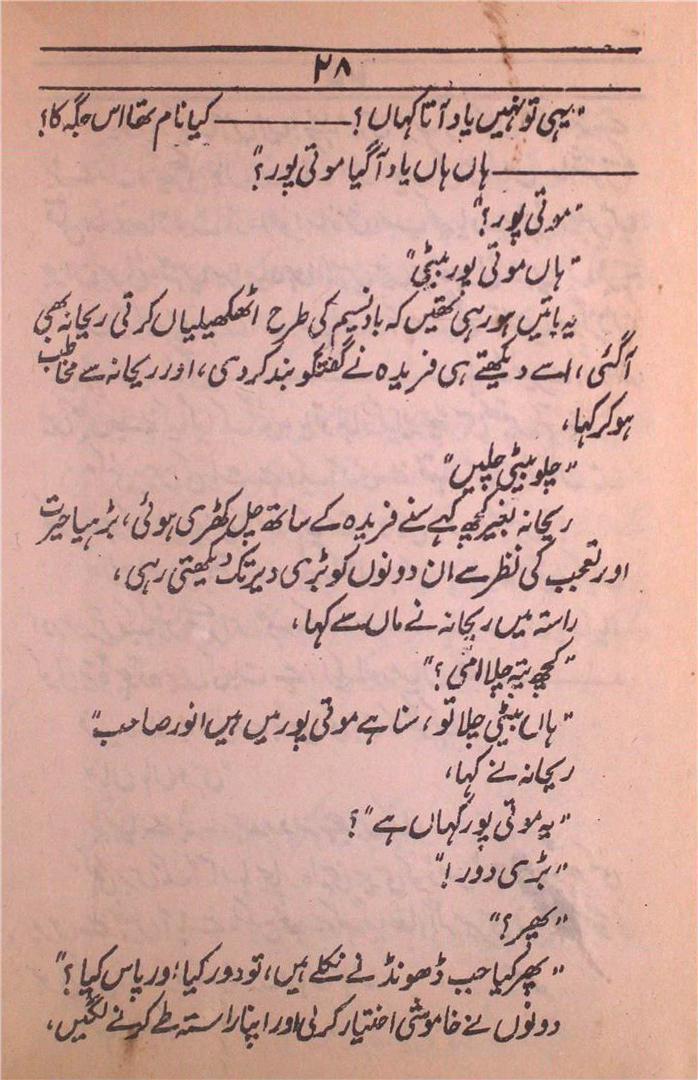 ۲۸
"یہی تو نہیں یاد آتا کہاں؟ ـــــــــ کیا نام تھا اس جگہ کا؟
ـــــــــ ہاں ہاں یاد آ گیا موتی پور؟"
"موتی پور؟"
"ہاں موتی پور بیٹی"
یہ باتیں ہو رہی تھیں کہ باد نسیم کی طرح اٹھکھیلیاں کرتی ریحانہ بھی
آگئی، اسے دیکھتے ہی فریدہ نے گفتگو بند کر دی، اور ریحانہ سے مخاطب
ہو کر کہا،
"چلو بیٹی چلیں"
ریحانہ بغیر کچھ کہے سنے فریدہ کے ساتھ چل کھڑی ہوئی، بڑھیا حیرت
اور تعجب کی نظر سے ان دونوں کو بڑی دیر تک دیکھتی رہی،
راستہ میں ریحانہ نے ماں سے کہا،
"کچھ پتہ چلا امی؟"
"ہاں بیٹی چلا تو، سنا ہے موتی پور میں ہیں انور صاحب"
ریحانہ نے کہا،
"یہ موتی پور کہاں ہے"؟
"بڑی دور!"
"پھر؟"
"پھر کیا جب ڈھونڈنے نکلے ہیں، تو دور کیا اور پاس کیا؟"
دونوں نے خاموشی اختیار کر لی اور اپنا راستہ طے کرنے لگیں،